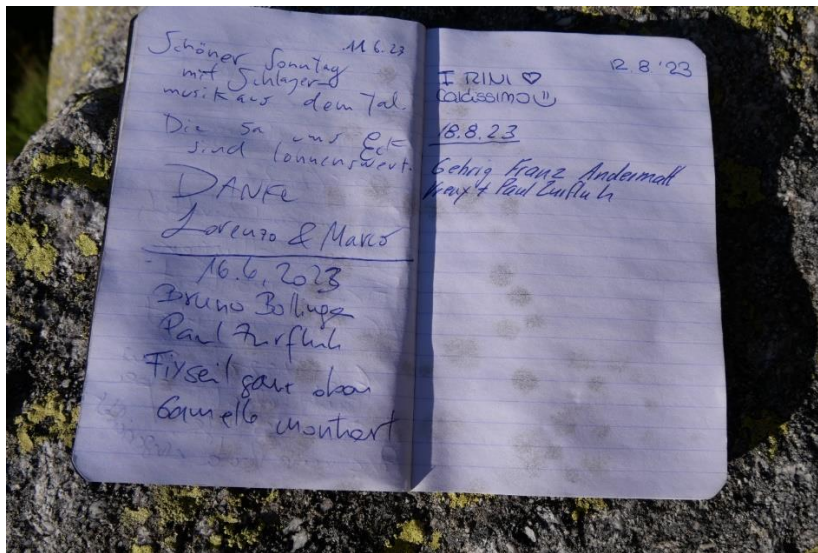 11.6.23
Schöner Sonntag
mit Schlager-
musik aus dem Tal.
Die 5a und Eck
sind lonnenswert.
DANKE
Lorenzo & Marco
16.6.2023
Bruno Bollinger
Paul Zurfluh
Fixseil ganz oben
Gamelle montiert
12.8'23
IRINI ♡
Caldissimo
18.8.23
Gehrig Franz Andermatt
+ Paul Zurfluh